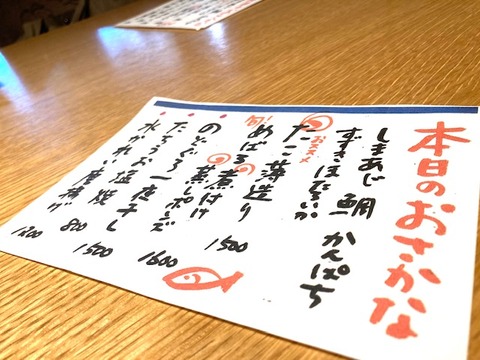 本日のおさかな
しまあじ 鯛 かんぱち
すずき ほたるいか
おススメ
たこ薄造り
旬!
めばる煮付け 1500
のどぐろ一夜干し 1600
たちうお塩焼 1500
水かれい唐揚げ
800
1200